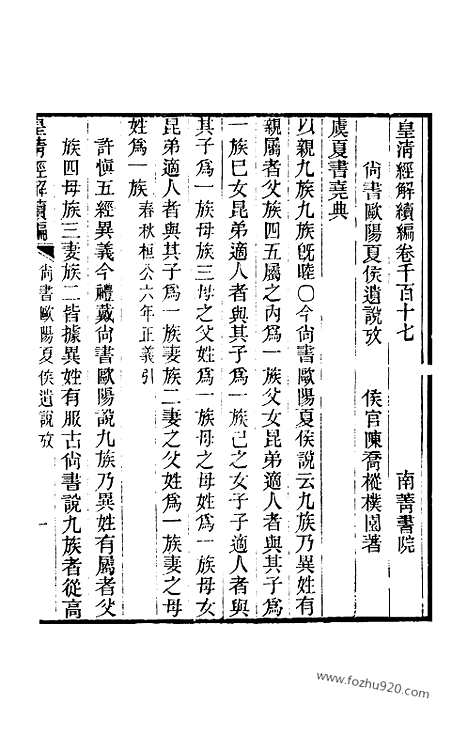 皇清經解續編卷千百十七 南菁書院
尚書歐陽夏侯遺說攷 侯官陳喬樅樸園著
虞夏書堯典
以親九族九族旣睦〇今尚書歐陽夏侯說云九族乃異姓有
親屬者父族四五屬之內為一族父女昆弟適人者與其子為
一族巳女昆弟適人者與其子為一族己之女子子適人者與
其子為一族母族三母之父姓為一族母之母姓為一族母女
昆弟適人者與其子為一族妻族二妻之父姓為一族妻之母
姓為一族春秋桓公六年正義引
許愼五經異義今禮戴尚書歐陽說九族乃異姓有屬者父
族四母族三妻族二皆據異姓有服古尚書說九族者從高
皇清經解續編 尚書歐陽夏侯遺說攷 一
www.fozhu920.com